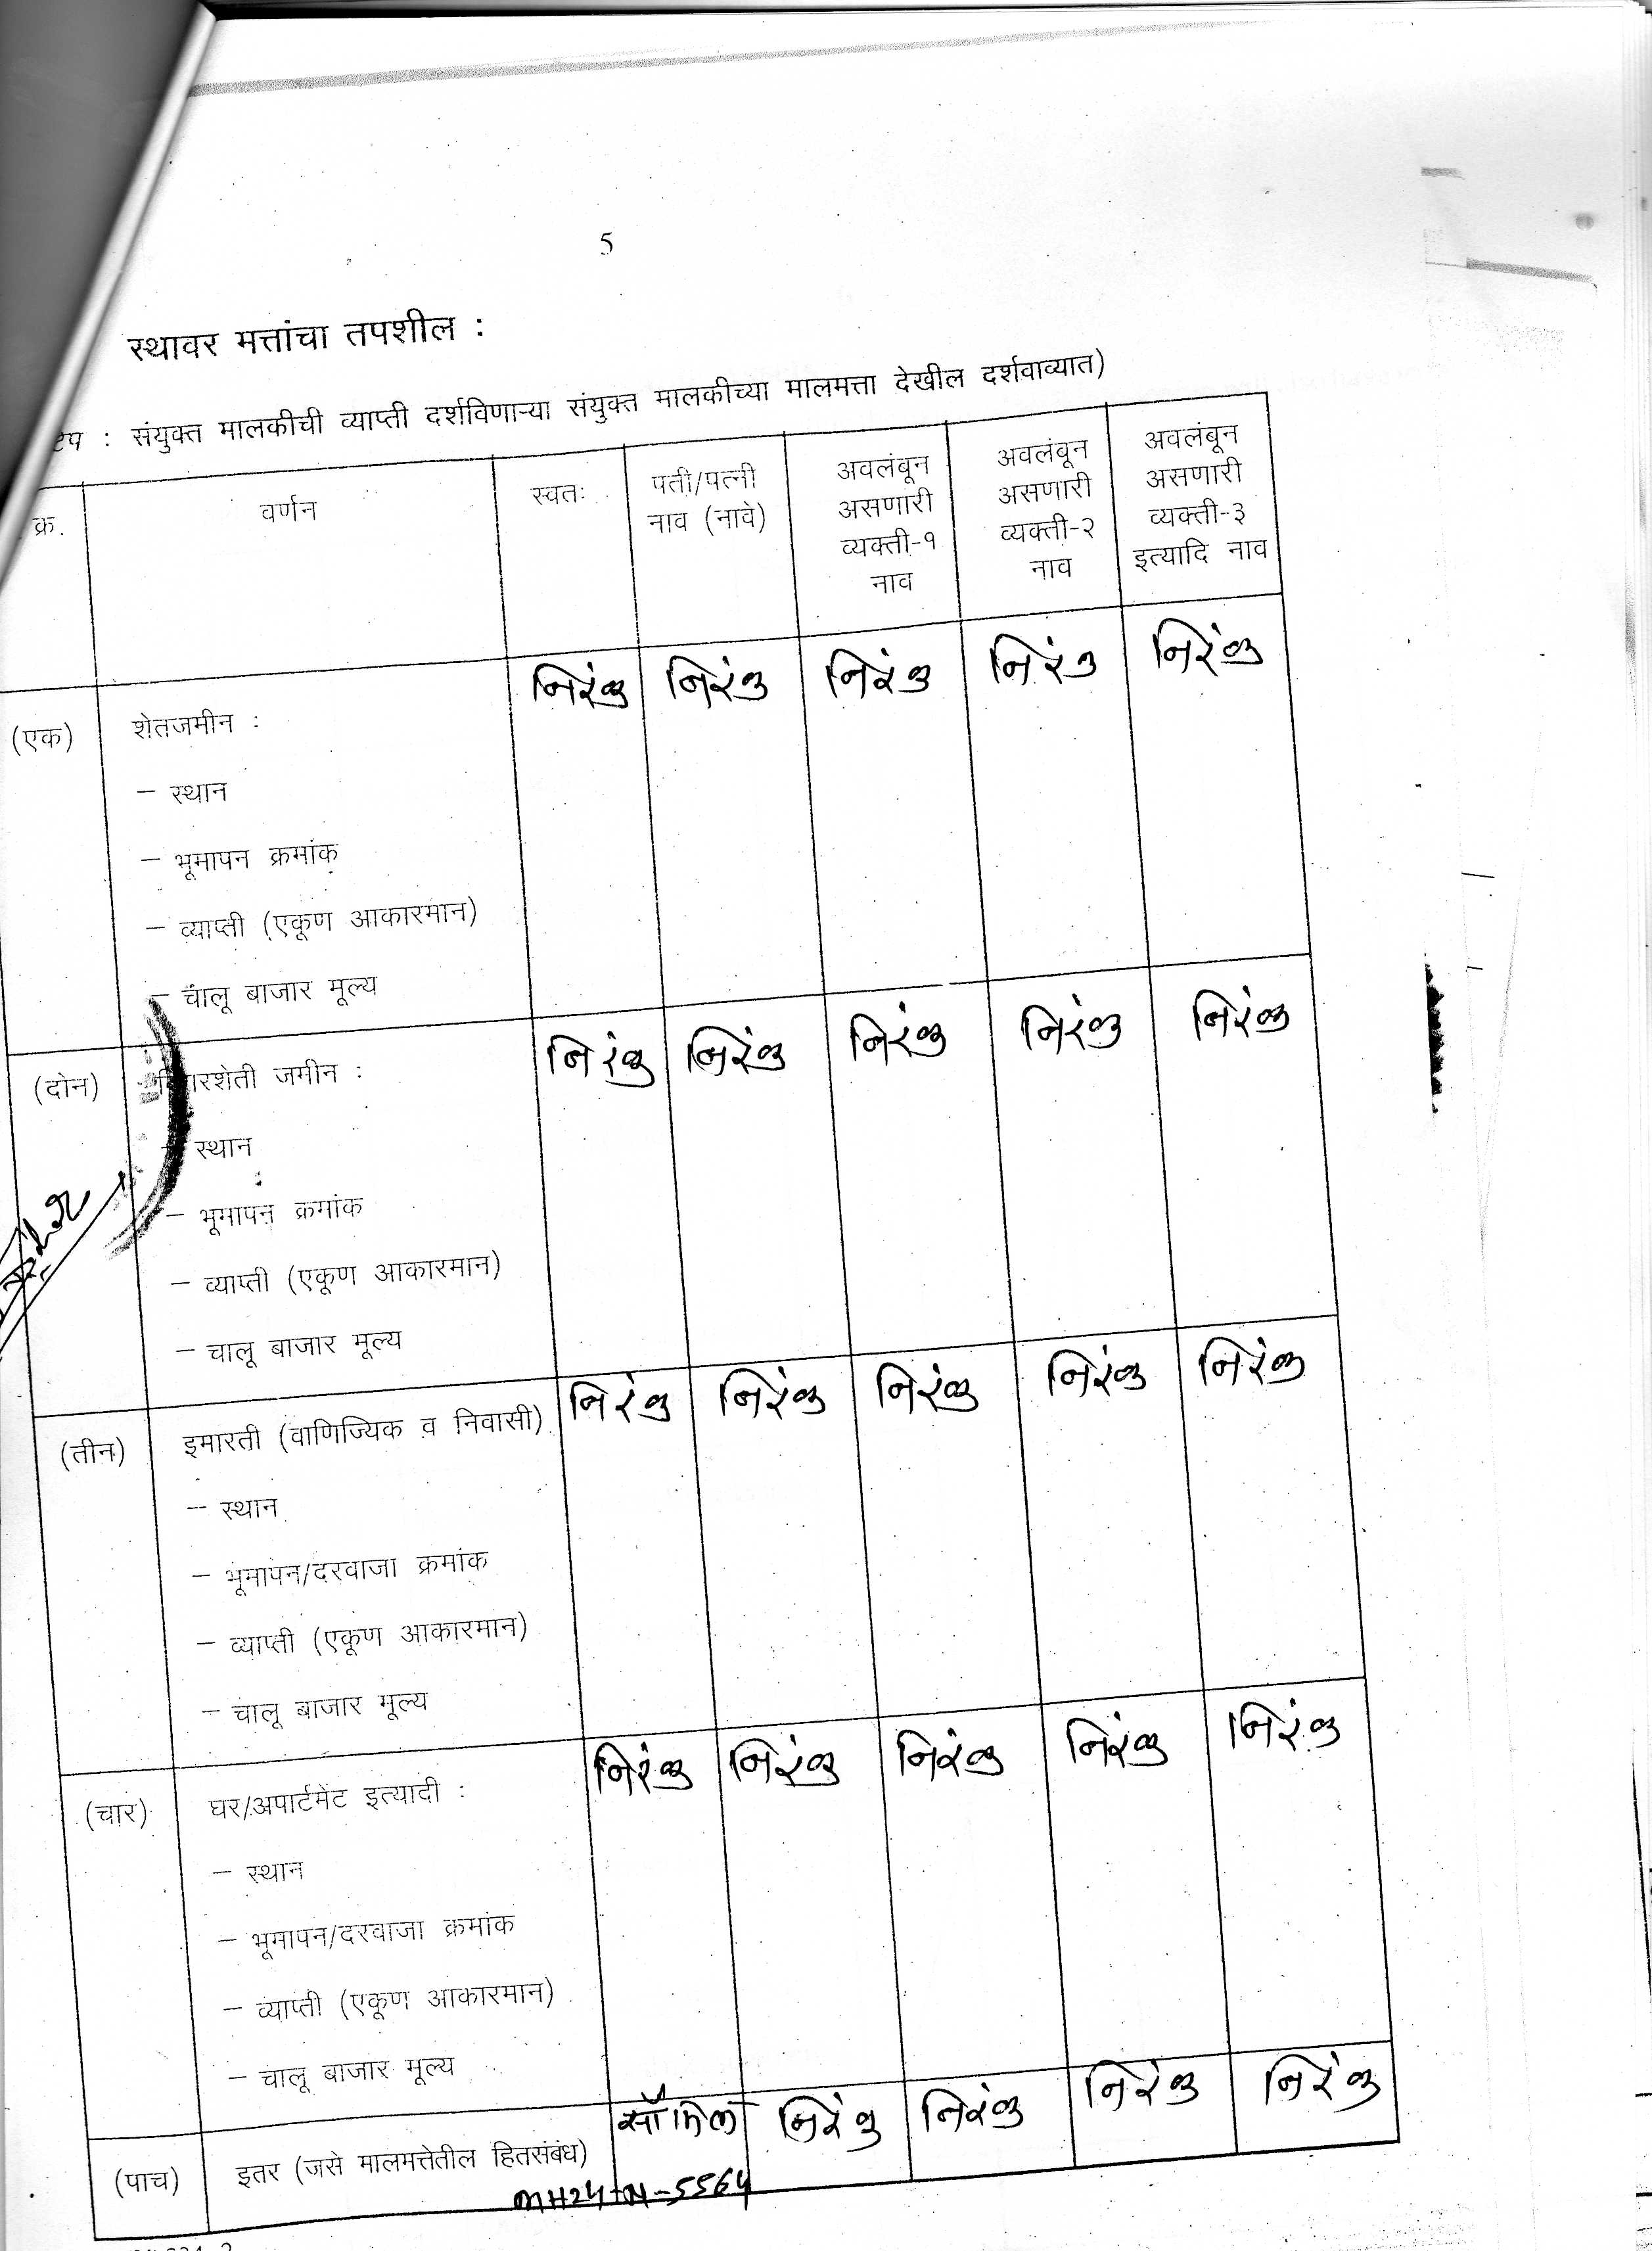 5
स्थावर मत्तांचा तपशील :
टिप : संयुक्त मालकीची व्याप्ती दर्शविणाऱ्या संयुक्त मालकीच्या मालमत्ता देखील दर्शवाव्यात)
क्र. वर्णन स्वतः पती/पत्नी नाव (नावे) अवलंबून असणारी व्यक्ती-१ नाव अवलंबून असणारी व्यक्ती-२ नाव अवलंबून असणारी व्यक्ती-३ इत्यादि नाव
निरंक निरंक निरंक निरंक निरंक
(एक) शेतजमीन :
– स्थान
– भूमापन क्रमांक
– व्याप्ती (एकूण आकारमान)
– चालू बाजार मूल्य
निरंक निरंक निरंक निरंक निरंक
(दोन) बिगरशेती जमीन :
– स्थान
– भूमापन क्रमांक
– व्याप्ती (एकूण आकारमान)
– चालू बाजार मूल्य
निरंक निरंक निरंक निरंक निरंक
(तीन) इमारती (वाणिज्यिक व निवासी)
– स्थान
– भूमापन/दरवाजा क्रमांक
– व्याप्ती (एकूण आकारमान)
– चालू बाजार मूल्य
निरंक निरंक निरंक निरंक निरंक
(चार) घर/अपार्टमेंट इत्यादी :
– स्थान
– भूमापन/दरवाजा क्रमांक
– व्याप्ती (एकूण आकारमान)
– चालू बाजार मूल्य
निरंक निरंक निरंक निरंक
(पाच) इतर (जसे मालमत्तेतील हितसंबंध)